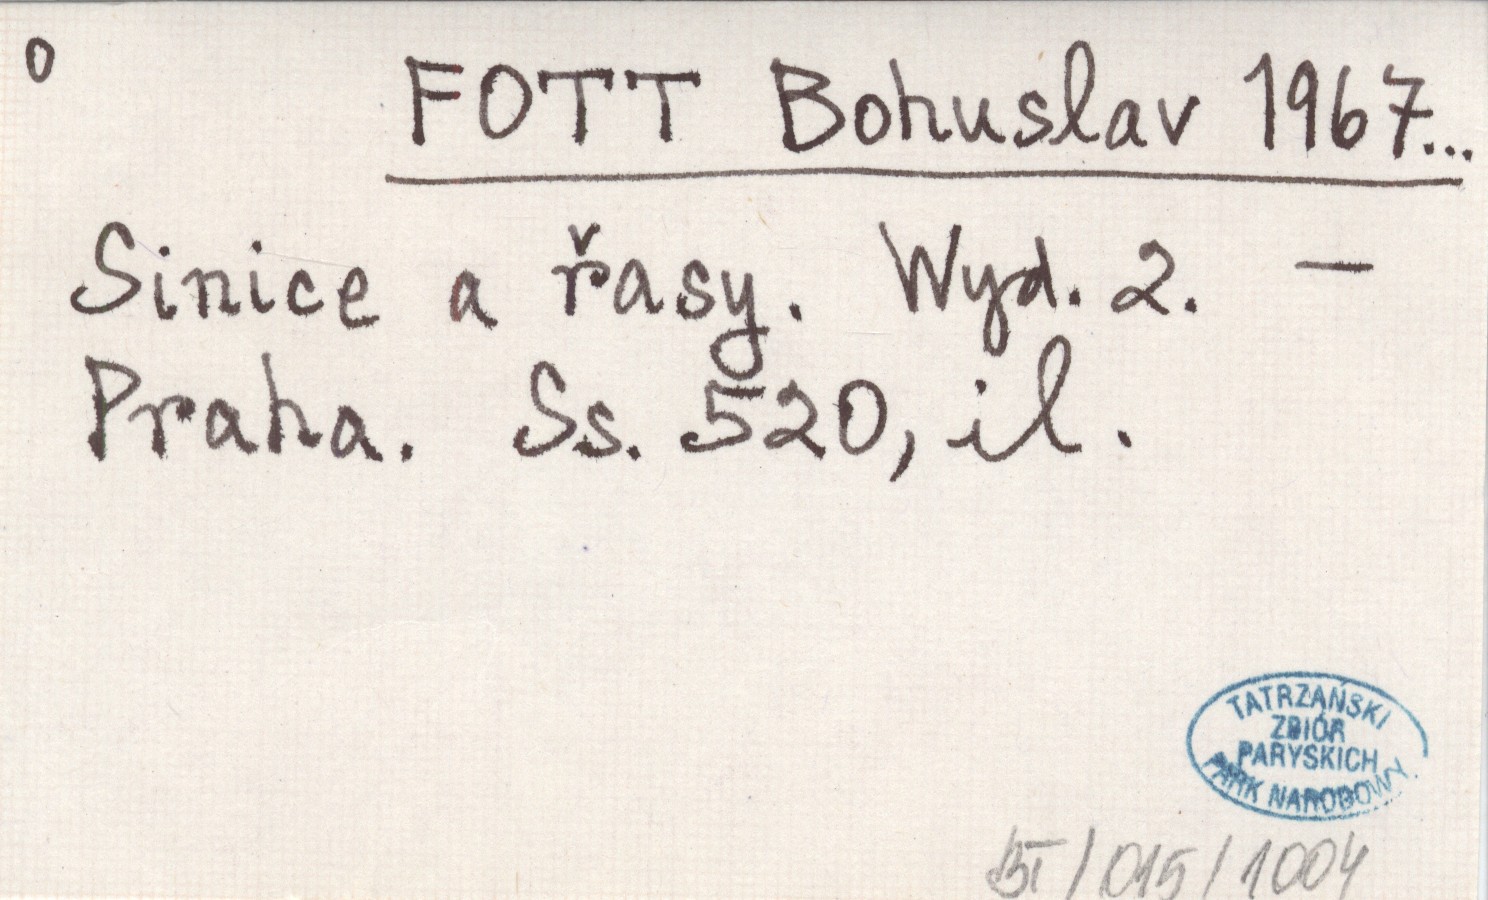 o
FOTT Bohuslav 1967...
Sinice a řasy. Wyd. 2. —
Praha. Ss. 520, il.
TATRZAŃSKI
ZBIÓR
PARYSKICH
PARK NARODOWY
BT/015/1004